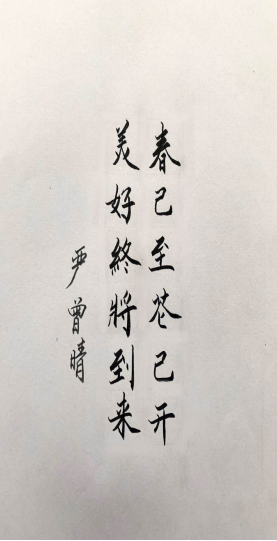 春已至花已开
美好終將到来
严曾晴